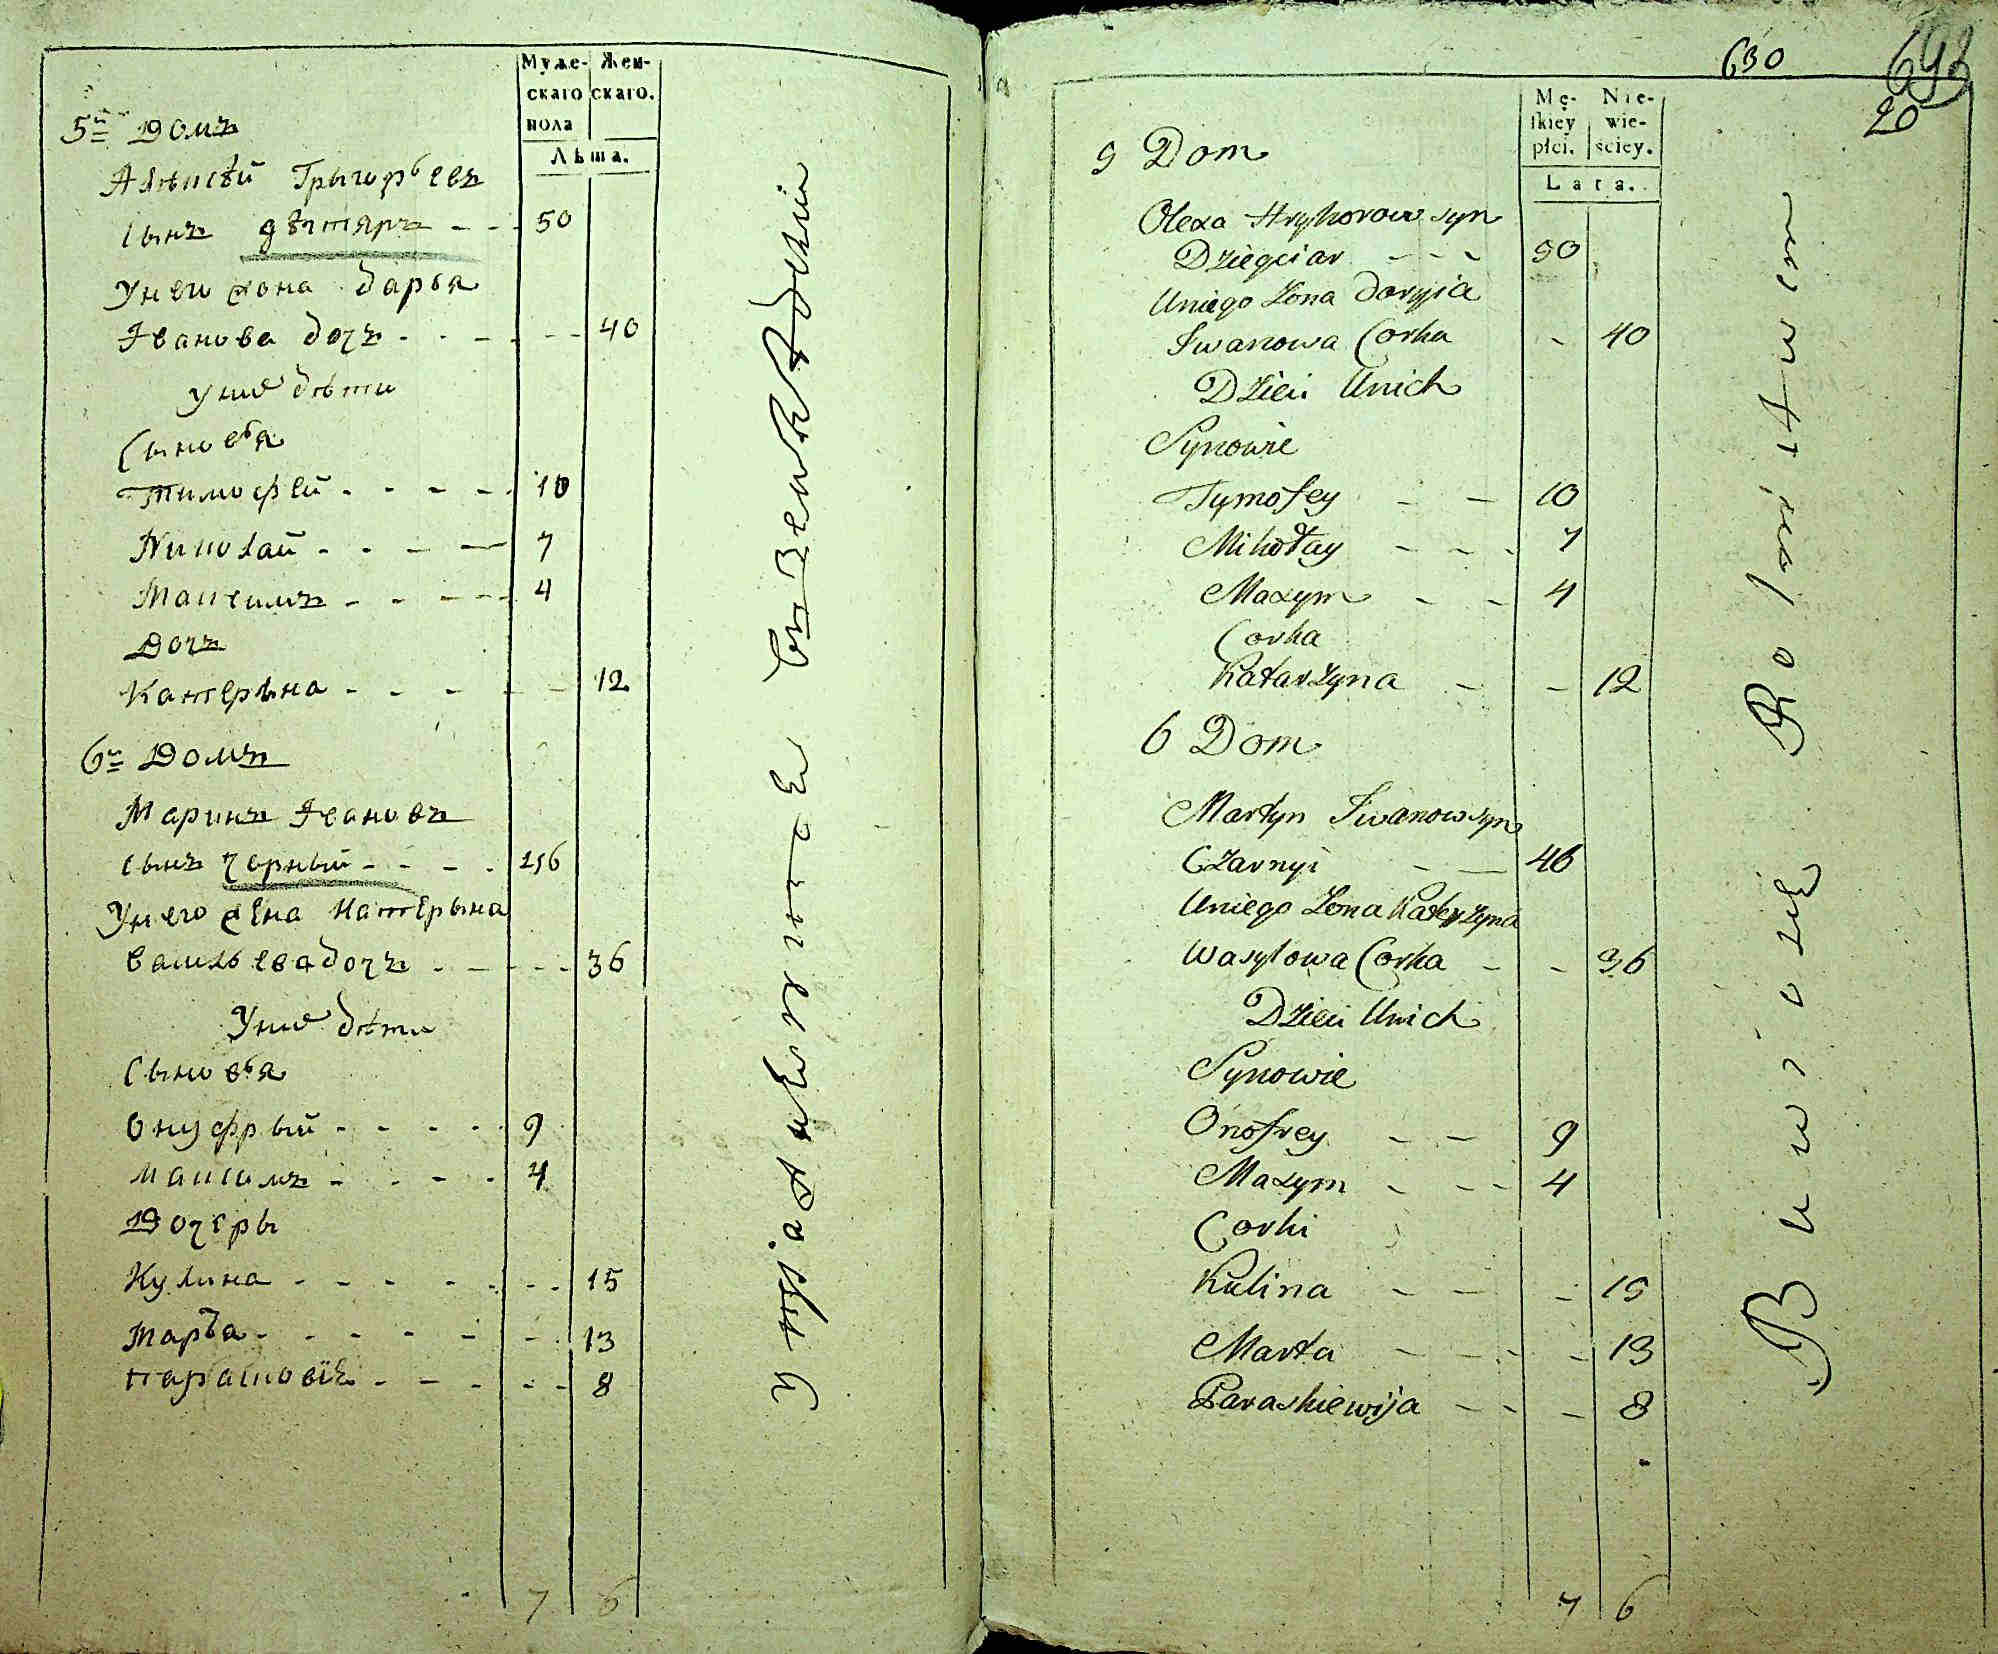 Муже- Жен-
скаго скаго.
пола
Лѣта.
5й Домъ
Алѣксѣй Грыгорьевъ
сынъ дѣтяръ - - 50
Унего жона дарья
Іванова дочъ - - - - 40
Уние дѣти
Сыновья
Тимофей - - - - 10
Николай - - - - 7
Максимъ - - - - 4
Дочъ
Катерѣна - - - - - 12
6й Домъ
Івановъ
сынъ черный - - - - 46
Унего жена Катерына
Васильева дочъ - - - - 36
Уние дѣти
Сыновья
Онуфрый - - - - - 9
Максимъ - - - - 4
Дочеры
Кулина - - - - - - - 15
Марта - - - - - - 13
8
7 6
630
20
Mę- Nie-
ſkiey wie-
płci. ściey.
Lata.
5 Dom
Olexa Hryhorow syn
Dziegciar - - - 50
Uniego Zona Daryja
Iwanowa Corka - 40
Dzieci Unich
Synowie
Tymofey - - 10
Mikołay - - - 7
Maxym - - 4
Corka
Katarzyna - - 12
6 Dom
Martyn Iwanow syn
Czarnyi - - 46
Uniego Zona Katerzyna
Wasylowa Corka - - 36
Dzieci Unich
Synowie
Onofrey - - 9
Maxym - - - 4
Corki
Kulina - - - 15
Marta - - - - 13
Paraskiewija - - - 8
7 6